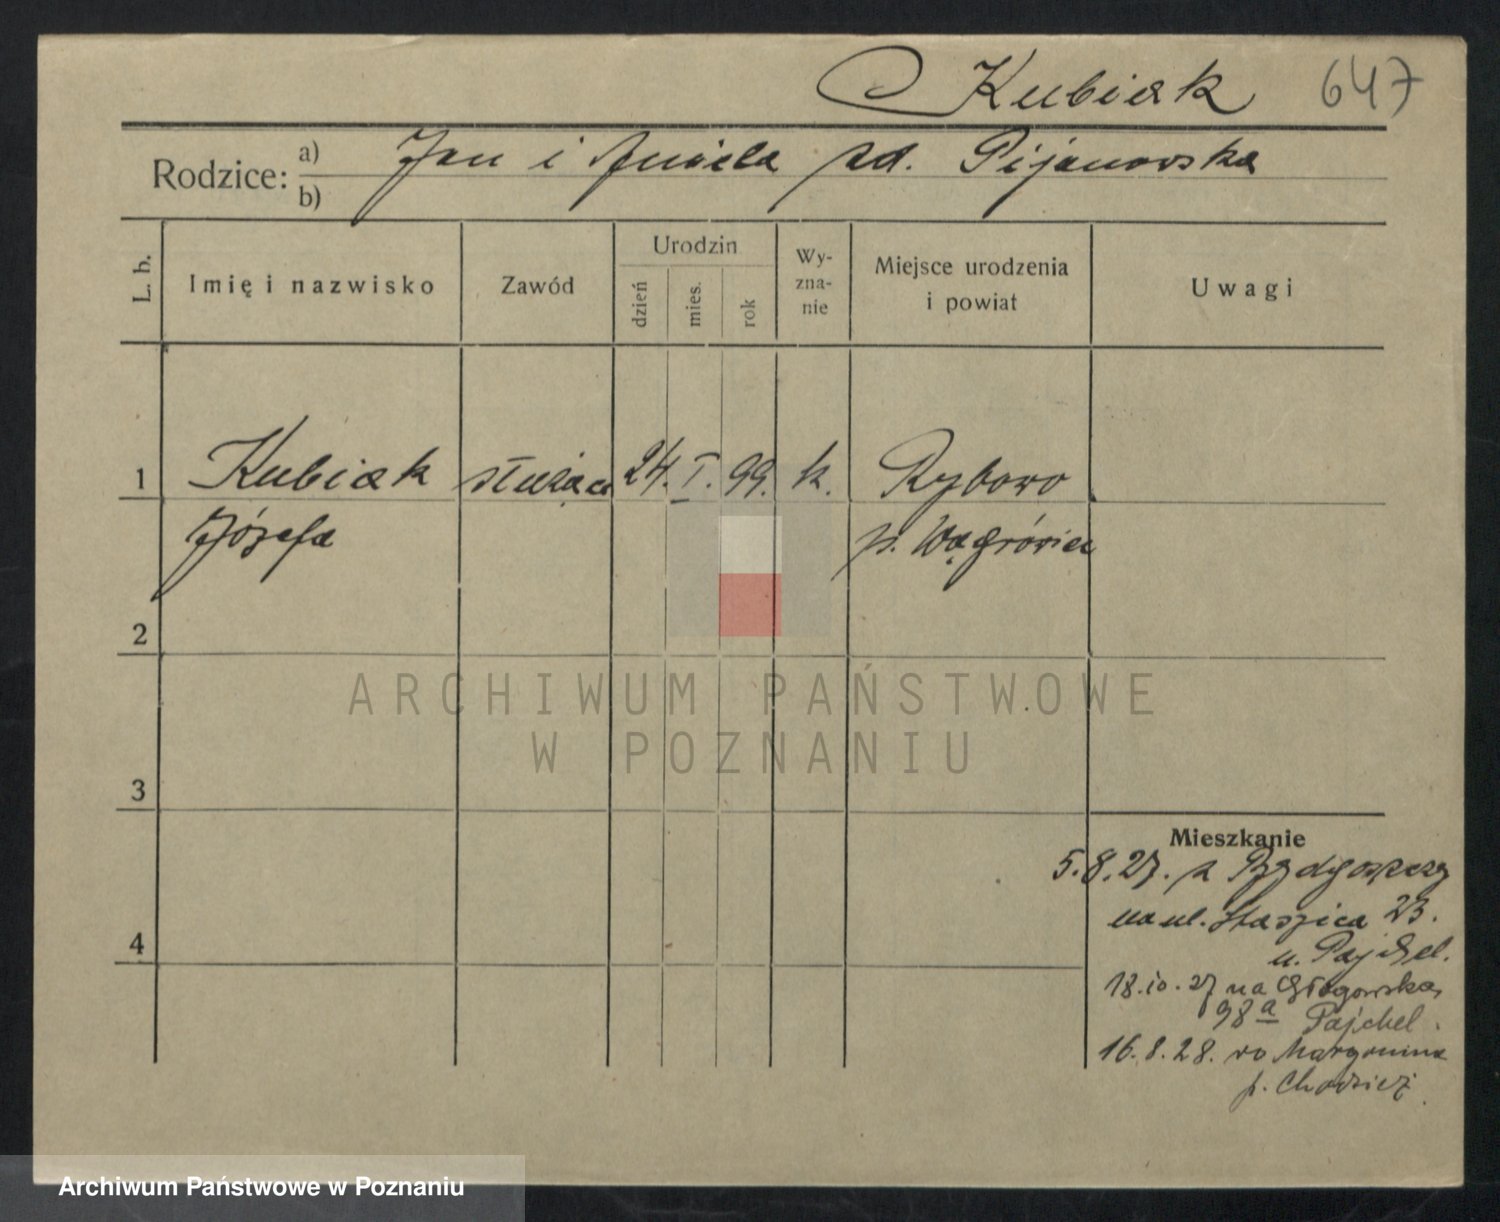 Kubiak 647
Rodzice: a) Jan i Aniela zd. Pijanowska
b)
L. b.
Imię i nazwisko
Zawód
Urodzin
dzień
mies.
rok
Wy-
zna-
nie
Miejsce urodzenia
i powiat
Uwagi
1 Kubiak służąca 24. I. 99. k. Rybowo
Józefa p. Wągrówiec
2
3
4
Mieszkanie
5.8.27. z Bydgoszczy
na ul. Staszica 23.
u. Pajchel.
18.10.27 na Głogowska,
98a Pajchel.
16.8.28. do Margonina
p. Chodzież.
ARCHIWUM PAŃSTWOWE
W POZNANIU
Archiwum Państwowe w Poznaniu